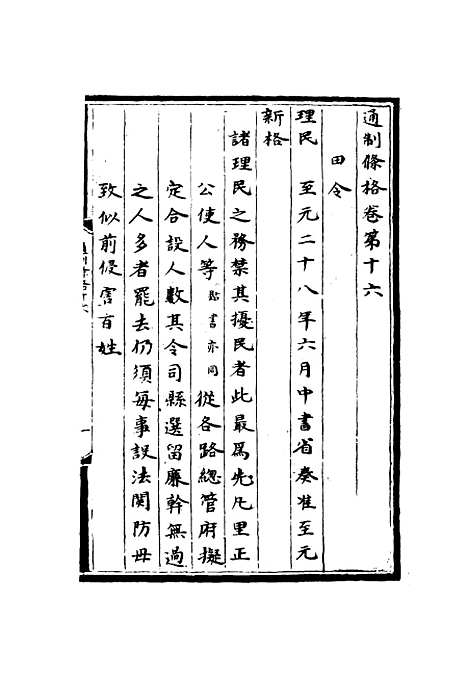 通制條格卷第十六
田令
理民　至元二十八年六月中書省奏准至元
新格
諸理民之務禁其擾民者此最爲先凡里正
公使人等貼書亦同從各路總管府擬
定合設人數其令司縣選留廉幹無過
之人多者罷去仍須每事設法関防毋
致似前侵害百姓